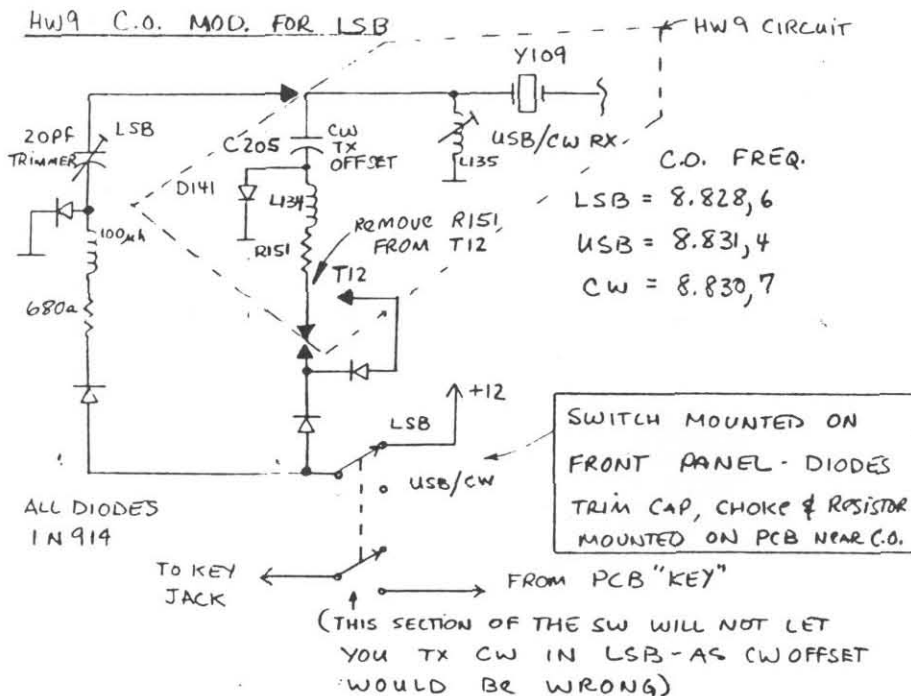 HW9 C.O. MOD. FOR LSB
HW9 CIRCUIT
Y109
20PF
TRIMMER
LSB
C205
CW
TX
OFFSET
USB/CW RX
L135
D141
L134
C.O. FREQ.
LSB = 8.828,6
USB = 8.831,4
CW = 8.830,7
100µh
R151
REMOVE R151
FROM T12
T12
680Ω
+12
LSB
USB/CW
SWITCH MOUNTED ON
FRONT PANEL - DIODES
TRIM CAP, CHOKE & RESISTOR
MOUNTED ON PCB NEAR C.O.
ALL DIODES
1N914
TO KEY
JACK
FROM PCB "KEY"
(THIS SECTION OF THE SW WILL NOT LET
YOU TX CW IN LSB - AS CW OFFSET
WOULD BE WRONG)